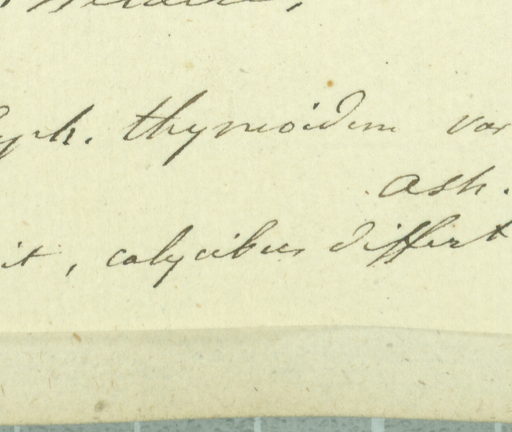 yph. thymoidem var
Ash.
it, calycibus differt